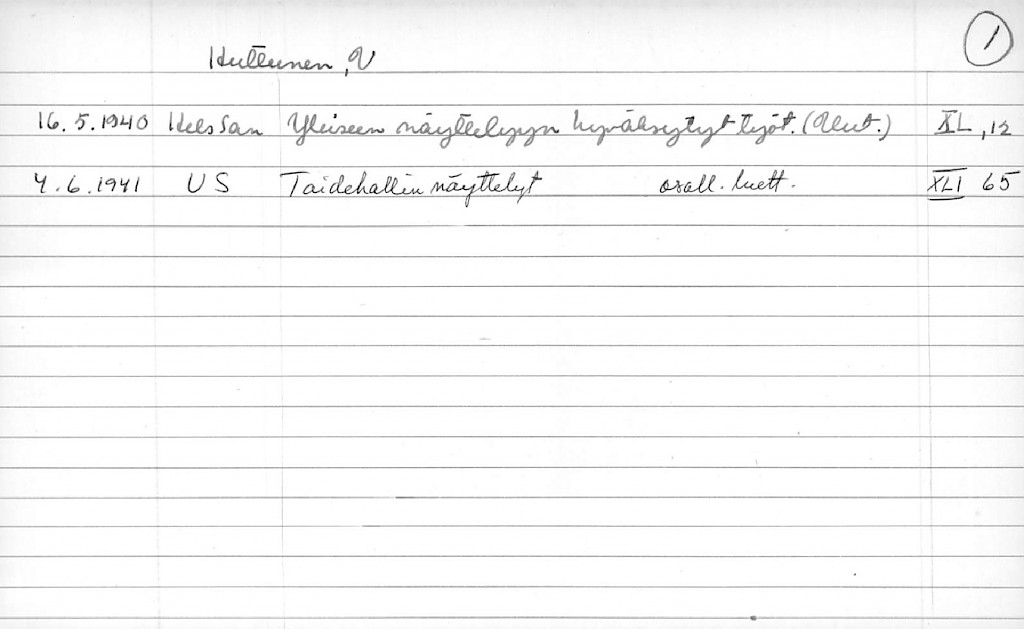 1
Huttunen, V
16.5.1940 Hels San Yleiseen näyttelyyn hyväksytyt työt. (Uut.) XL, 12
4.6.1941 US Taidehallin näyttelyt osall. luett. XLI 65